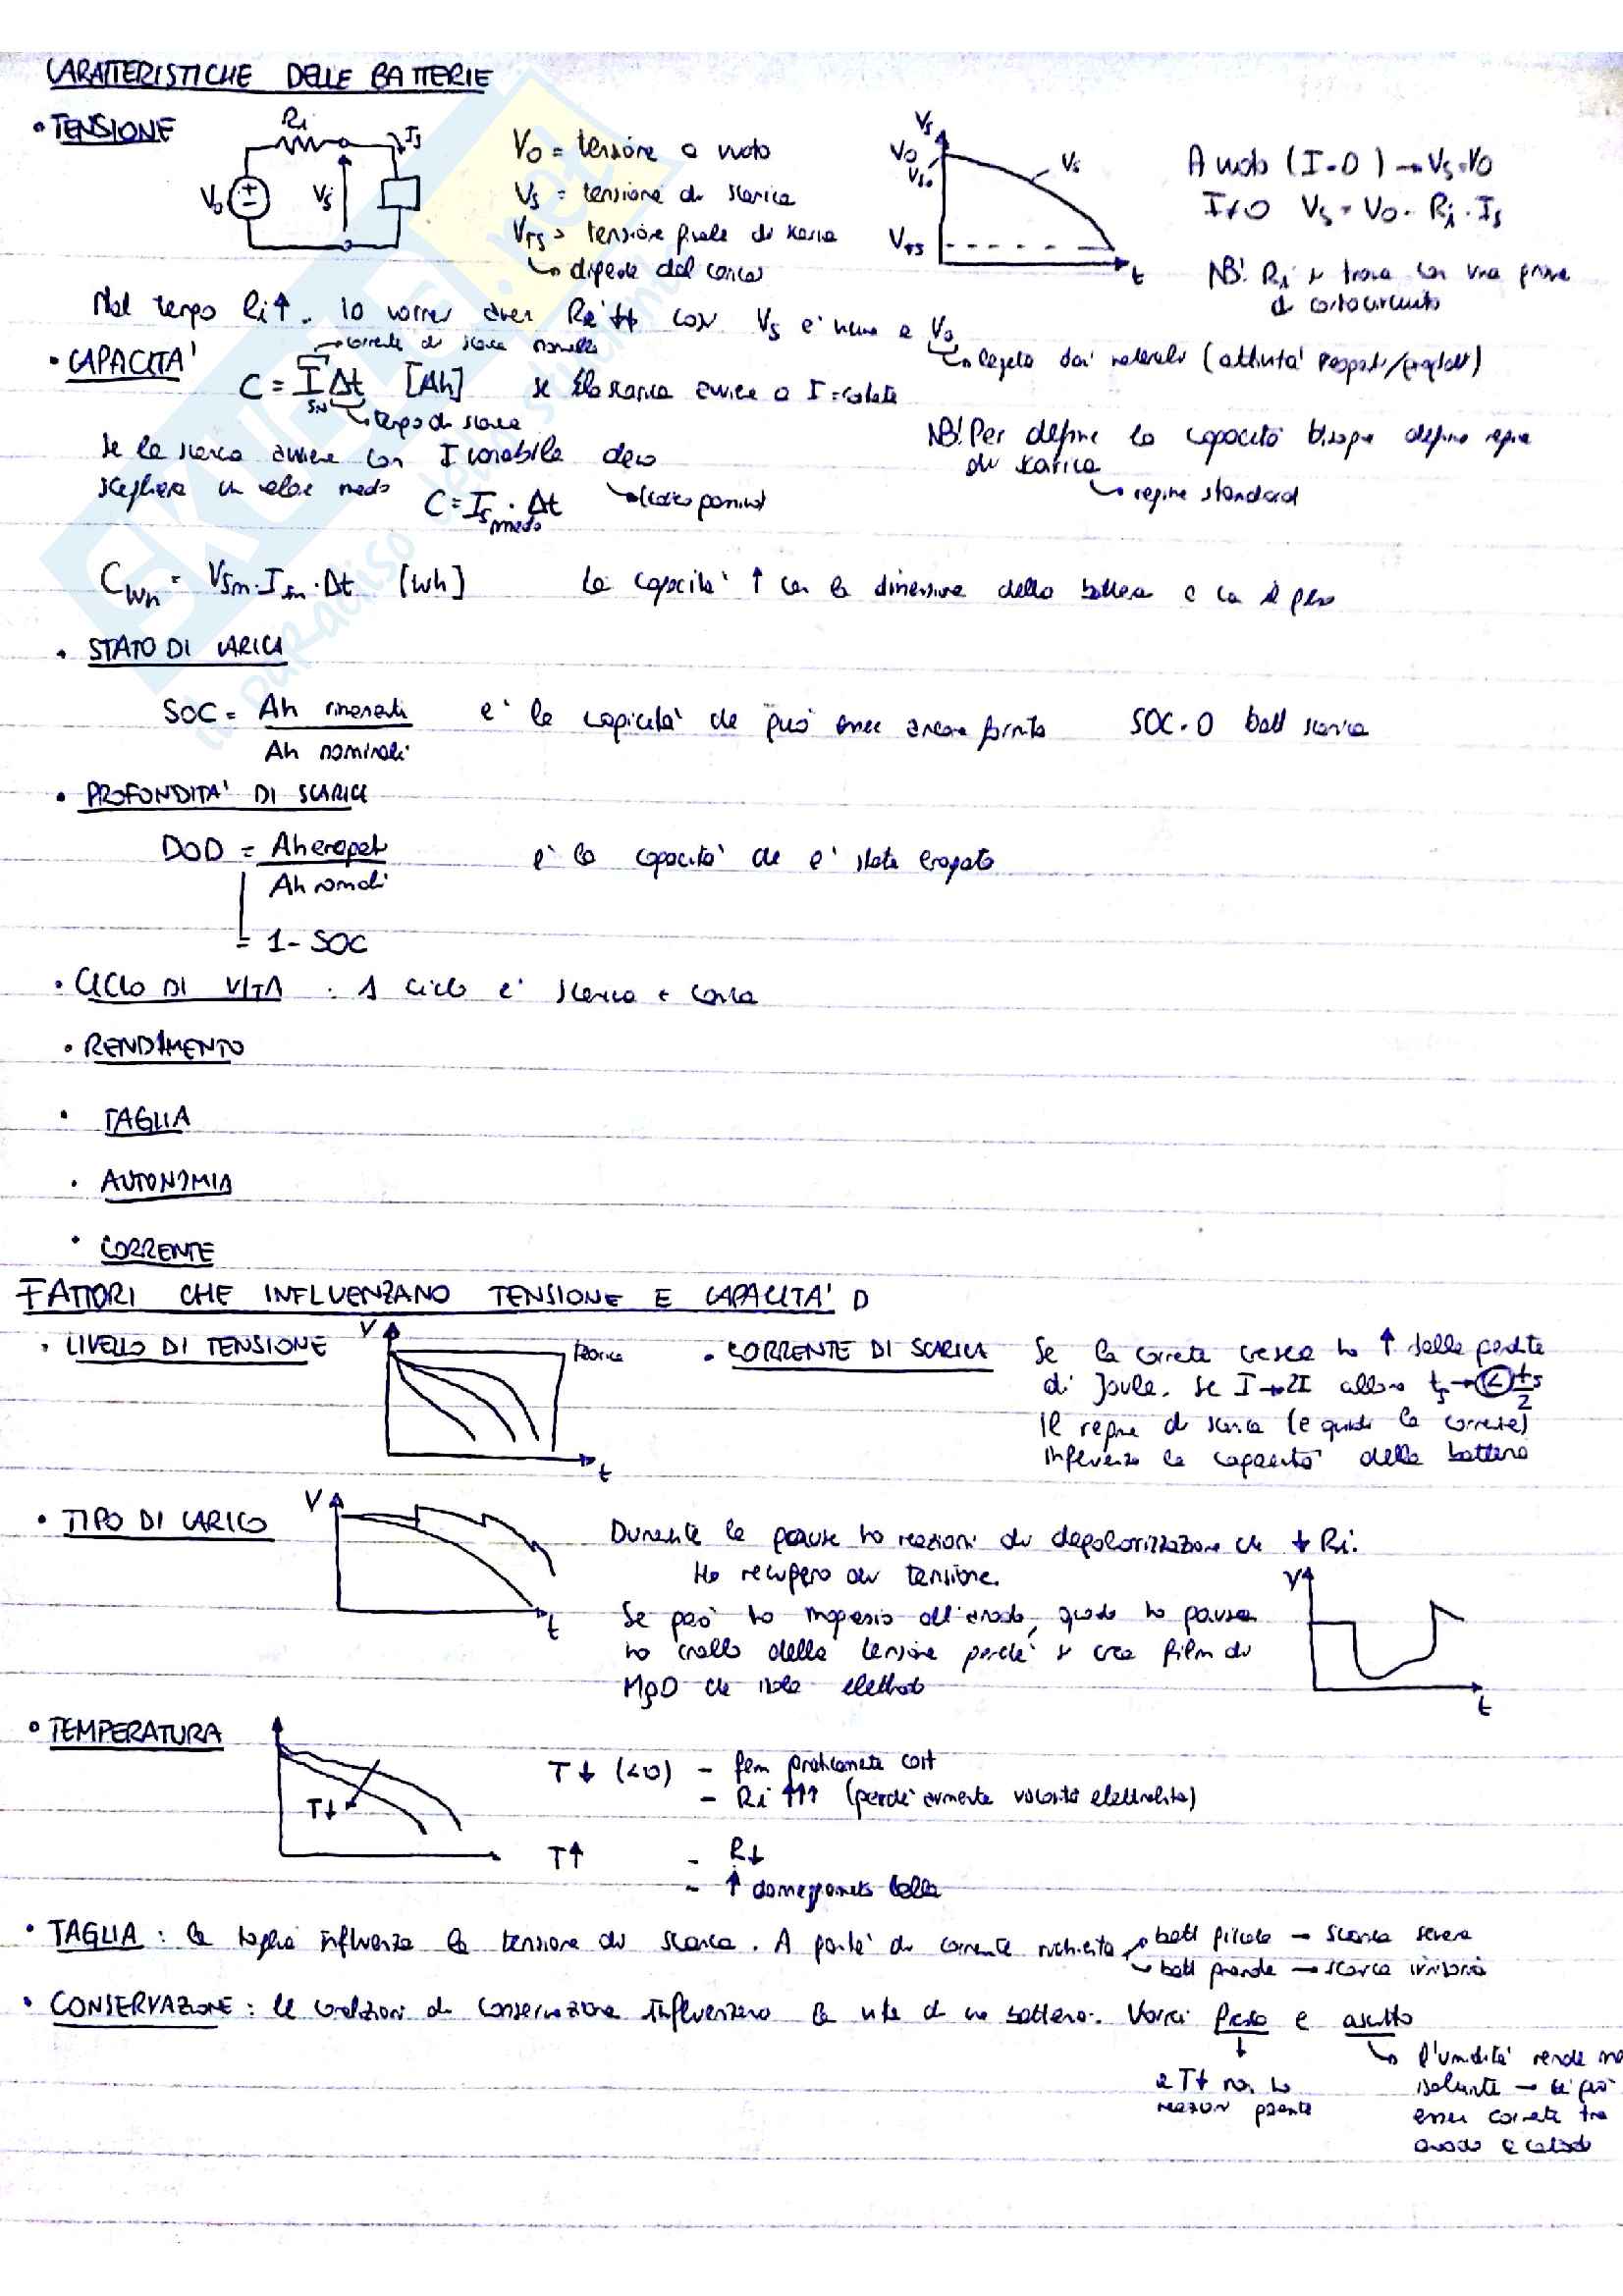 CARATTERISTICHE DELLE BATTERIE
• TENSIONE
Ri
Is
Vo
Vs
V0 = tensione a vuoto
Vs = tensione di scarica
VFS = tensione finale di scarica
dipende dal carico
Vs
V0
Vso
VFS
Vs
t
A vuoto (I=0) → Vs=V0
I≠0 Vs = V0 - Ri · Is
NB! Ri si trova con una prova
di cortocircuito
Nel tempo Ri↑. Io vorrei aver Ri ↓↓ così Vs è vicino a V0
legata dai materiali (attività reagenti/prodotti)
• CAPACITA'
corrente di scarica nominale
C = I SN Δt [Ah] se la scarica avviene a I=costante
tempo di scarica
Se la scarica avviene con I variabile devo
scegliere un valore medio C = Is medio · Δt
NB! Per definire la capacità bisogna definire regime
di scarica
regime standard
CWh = VSm · ISm · Δt [Wh] La capacità ↑ con la dimensione della batteria e con il peso
• STATO DI CARICA
SOC = Ah rimanenti / Ah nominali è la capacità che può essere ancora fornita SOC=0 batt scarica
• PROFONDITA' DI SCARICA
DOD = Ah erogati / Ah nominali è la capacità che è stata erogata
= 1 - SOC
• CICLO DI VITA : 1 ciclo è scarica + carica
• RENDIMENTO
• TAGLIA
• AUTONOMIA
• CORRENTE
FATTORI CHE INFLUENZANO TENSIONE E CAPACITA' D
• LIVELLO DI TENSIONE
V
teorica
t
• CORRENTE DI SCARICA Se la corrente cresce ho ↑ delle perdite
di Joule. Se I→2I allora ts → < ts/2
Il regime di scarica (e quindi la corrente)
influenza la capacità della batteria
• TIPO DI CARICO
V
t
Durante le pause ho reazioni di depolarizzazione che ↓ Ri.
Ho recupero di tensione.
Se però ho magnesio all'anodo, quando ho pausa
ho crollo della tensione perché si crea film di
MgO che isola elettrodo
V
t
• TEMPERATURA
T↓
T↓ (<0) - fem praticamente cost
- Ri ↑↑↑ (perché aumenta viscosità elettrolita)
T↑ - R↓
- ↑ danneggiamento cella
• TAGLIA : la taglia influenza la tensione di scarica. A parità di corrente richiesta
batt piccola → scarica severa
batt grande → scarica irrisoria
• CONSERVAZIONE : le condizioni di conservazione influenzano la vita di una batteria. Vorrei fresco e asciutto
a T↓ non ho
reazioni parassite
l'umidità rende no
isolante → ci può
esser corrente tra
anodo e catodo
SKUOLA.net
il paradiso dello studente